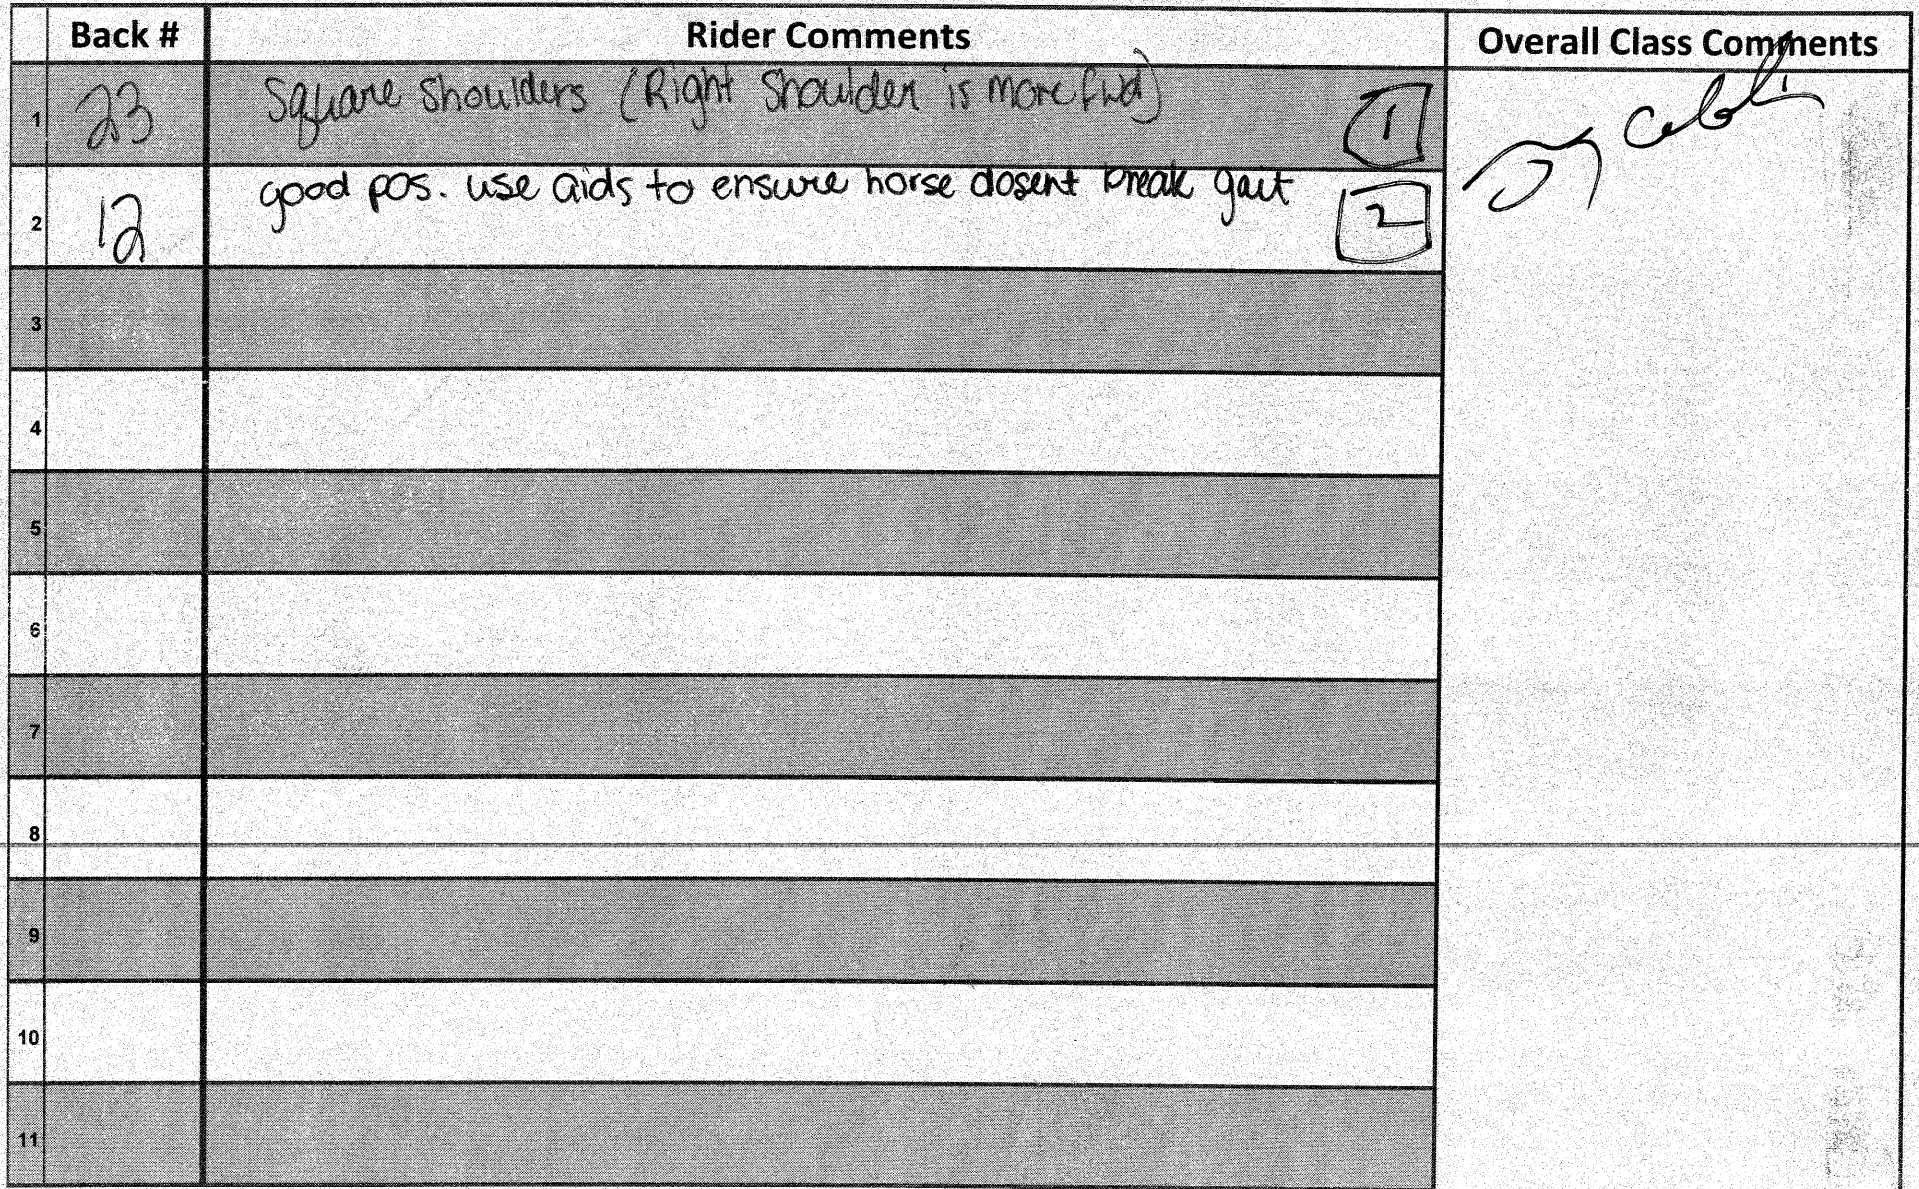 Back # Rider Comments Overall Class Comments
1 23 Square Shoulders (Right Shoulder is more fwd) 1
2 12 good pos. use aids to ensure horse dosent break gait 2
3
4
5
6
7
8
9
10
11